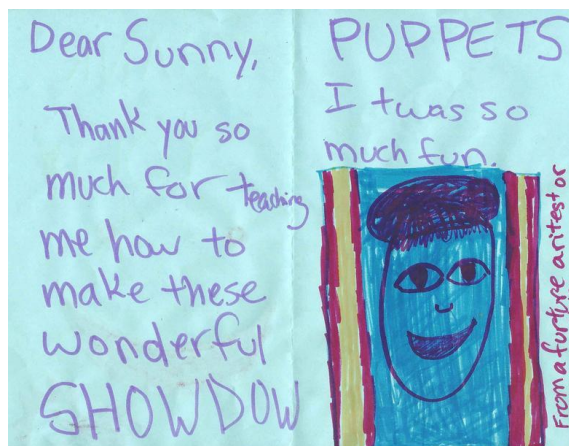 Dear Sunny,
Thank you so
much for teaching
me how to
make these
wonderful
SHOWDOW
PUPPETS
I twas so
much fun.
From a furtire aritest or